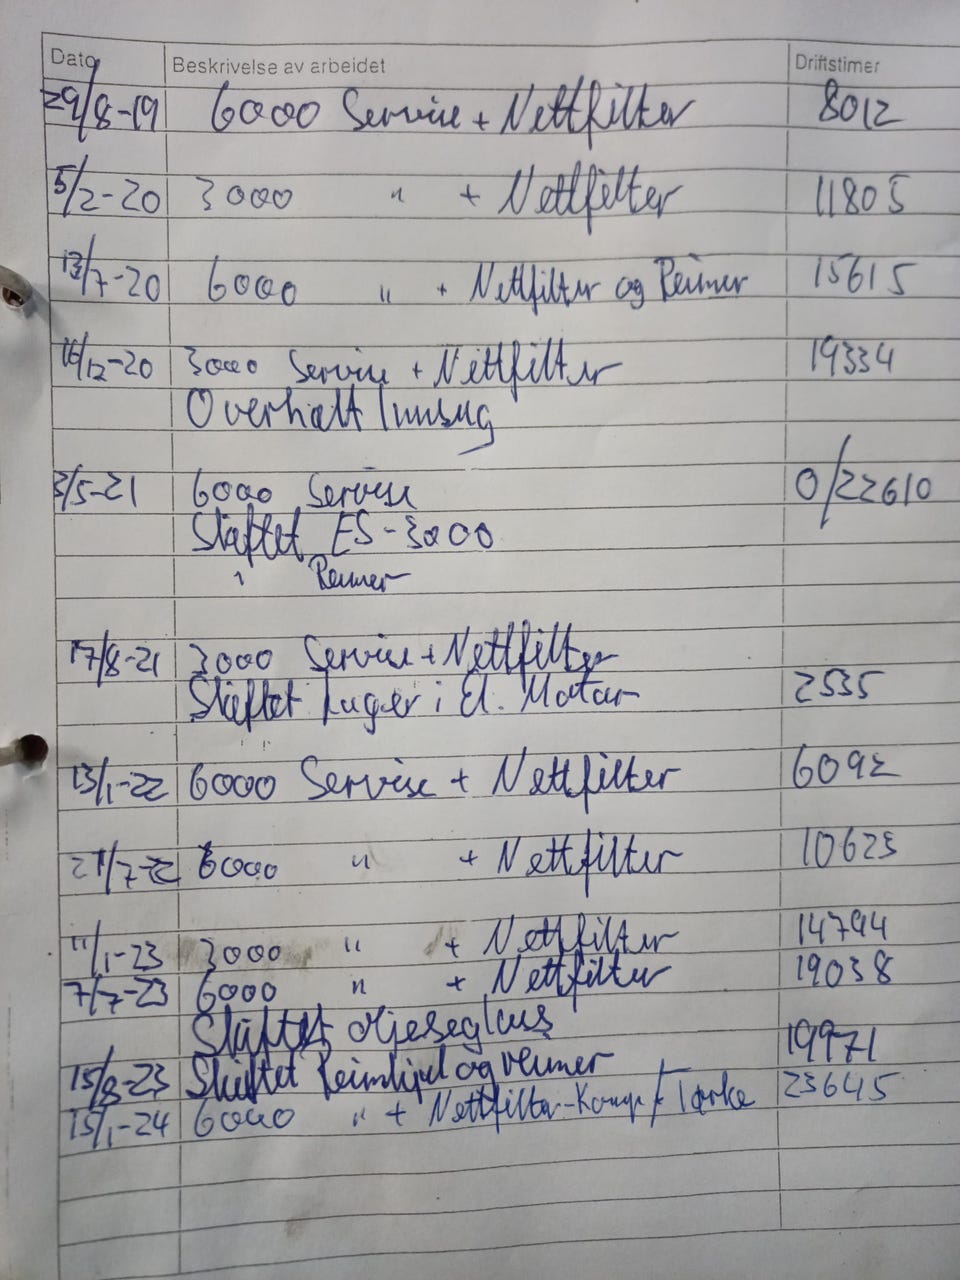 Dato Beskrivelse av arbeidet Driftstimer
29/8-19 6000 Service + Nettfilter 8012
5/2-20 3000 " + Nettfilter 11805
13/7-20 6000 " + Nettfilter og Reimer 15615
16/12-20 3000 Service + Nettfilter 19334
Overhalt Innsug
3/5-21 6000 Service 0/22610
Skiftet ES-3000
" Reimer
17/8-21 3000 Service + Nettfilter
Skiftet Lager i El. Motor 2535
13/1-22 6000 Service + Nettfilter 6092
21/7-22 6000 " + Nettfilter 10623
11/1-23 3000 " + Nettfilter 14794
7/7-23 6000 " + Nettfilter 19038
Skiftet oljeseglass
15/8-23 Skiftet Reimhjul og reimer 19971
15/1-24 6000 " + Nettfilter-Komp/Tørke 23645